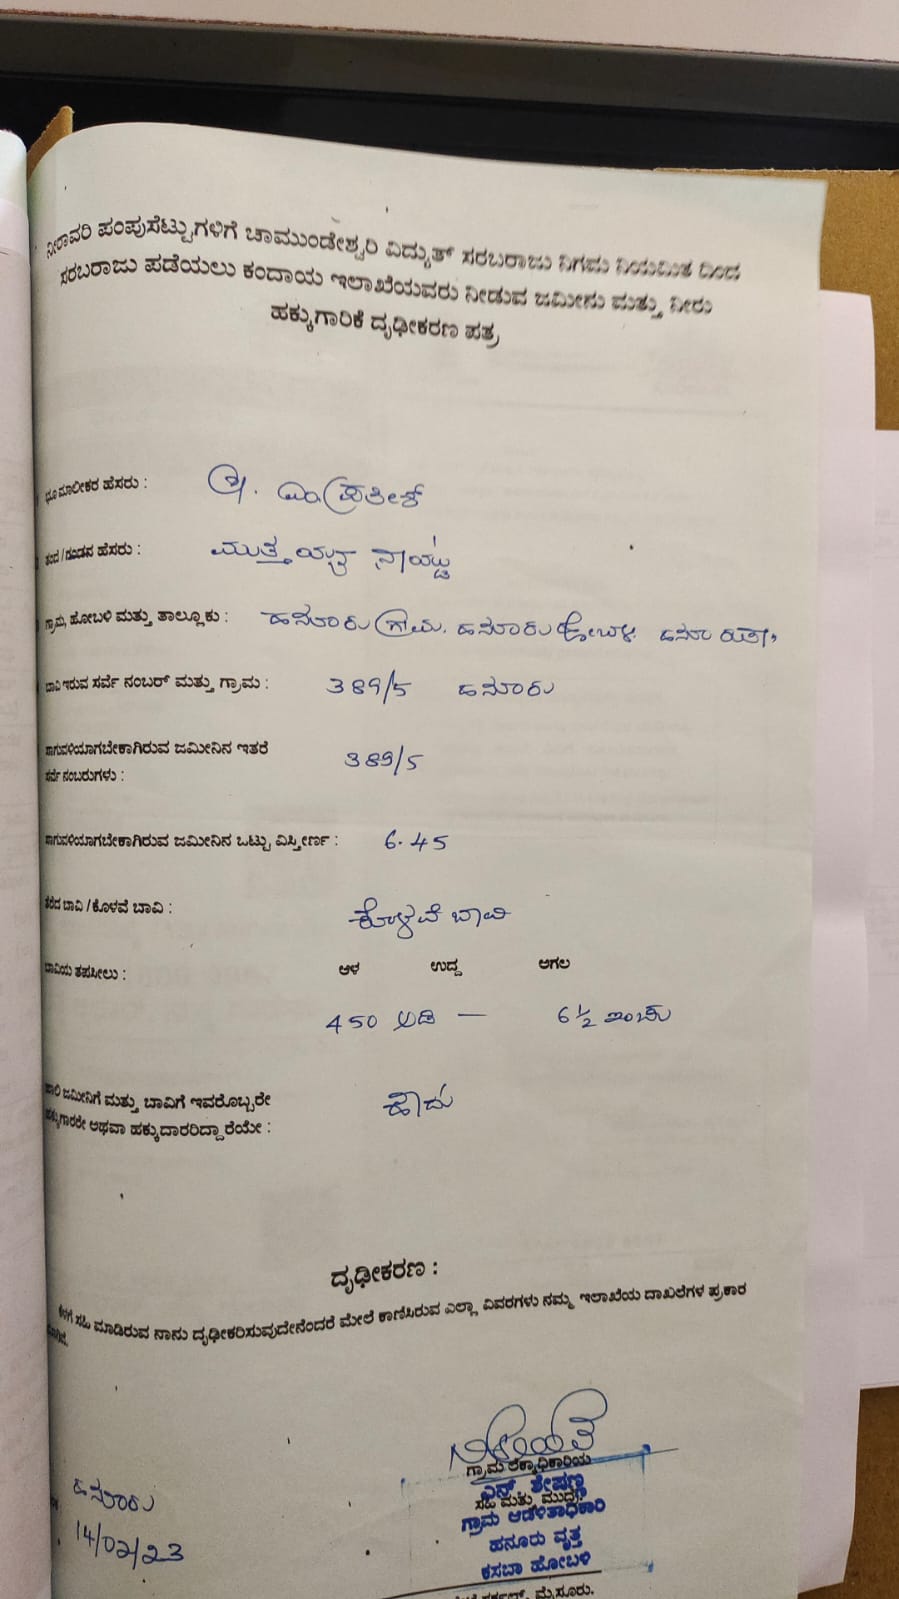 ನೀರಾವರಿ ಪಂಪುಸೆಟ್ಟುಗಳಿಗೆ ಚಾಮುಂಡೇಶ್ವರಿ ವಿದ್ಯುತ್ ಸರಬರಾಜು ನಿಗಮ ನಿಯಮಿತ ದಿಂದ
ಸರಬರಾಜು ಪಡೆಯಲು ಕಂದಾಯ ಇಲಾಖೆಯವರು ನೀಡುವ ಜಮೀನು ಮತ್ತು ನೀರು
ಹಕ್ಕುಗಾರಿಕೆ ದೃಢೀಕರಣ ಪತ್ರ
ಭೂಮಾಲೀಕರ ಹೆಸರು :
ತಂದೆ / ಗಂಡನ ಹೆಸರು : ಮುತ್ತಯ್ಯ ನಾಯ್ಡು
ಗ್ರಾಮ, ಹೋಬಳಿ ಮತ್ತು ತಾಲ್ಲೂಕು : ಹನೂರು ಗ್ರಾಮ. ಹನೂರು ಹೋಬಳಿ.
ಬಾವಿ ಇರುವ ಸರ್ವೆ ನಂಬರ್ ಮತ್ತು ಗ್ರಾಮ : 389/5 ಹನೂರು
ಸಾಗುವಳಿಯಾಗಬೇಕಾಗಿರುವ ಜಮೀನಿನ ಇತರೆ
ಸರ್ವೆ ನಂಬರುಗಳು : 389/5
ಸಾಗುವಳಿಯಾಗಬೇಕಾಗಿರುವ ಜಮೀನಿನ ಒಟ್ಟು ವಿಸ್ತೀರ್ಣ : 6.45
ತೆರೆದ ಬಾವಿ / ಕೊಳವೆ ಬಾವಿ : ಕೊಳವೆ ಬಾವಿ
ಬಾವಿಯ ತಪಸೀಲು : ಆಳ ಉದ್ದ ಅಗಲ
450 ಅಡಿ — 6½ ಇಂಚು
ಜಮೀನಿಗೆ ಮತ್ತು ಬಾವಿಗೆ ಇವರೊಬ್ಬರೇ
ಹಕ್ಕುಗಾರರೇ ಅಥವಾ ಹಕ್ಕುದಾರರಿದ್ದಾರೆಯೇ : ಹೌದು
ದೃಢೀಕರಣ :
ಕೆಳಗೆ ಸಹಿ ಮಾಡಿರುವ ನಾನು ದೃಢೀಕರಿಸುವುದೇನೆಂದರೆ ಮೇಲೆ ಕಾಣಿಸಿರುವ ಎಲ್ಲಾ ವಿವರಗಳು ನಮ್ಮ ಇಲಾಖೆಯ ದಾಖಲೆಗಳ ಪ್ರಕಾರ
ಗ್ರಾಮ ಲೆಕ್ಕಾಧಿಕಾರಿಯ
ಎನ್. ಶೇಷಣ್ಣ
ಸಹಿ ಮತ್ತು ಮುದ್ರೆ
ಗ್ರಾಮ ಆಡಳಿತಾಧಿಕಾರಿ
ಹನೂರು ವೃತ್ತ
ಕಸಬಾ ಹೋಬಳಿ
ಹನೂರು
14/02/23
ಮೈಸೂರು.